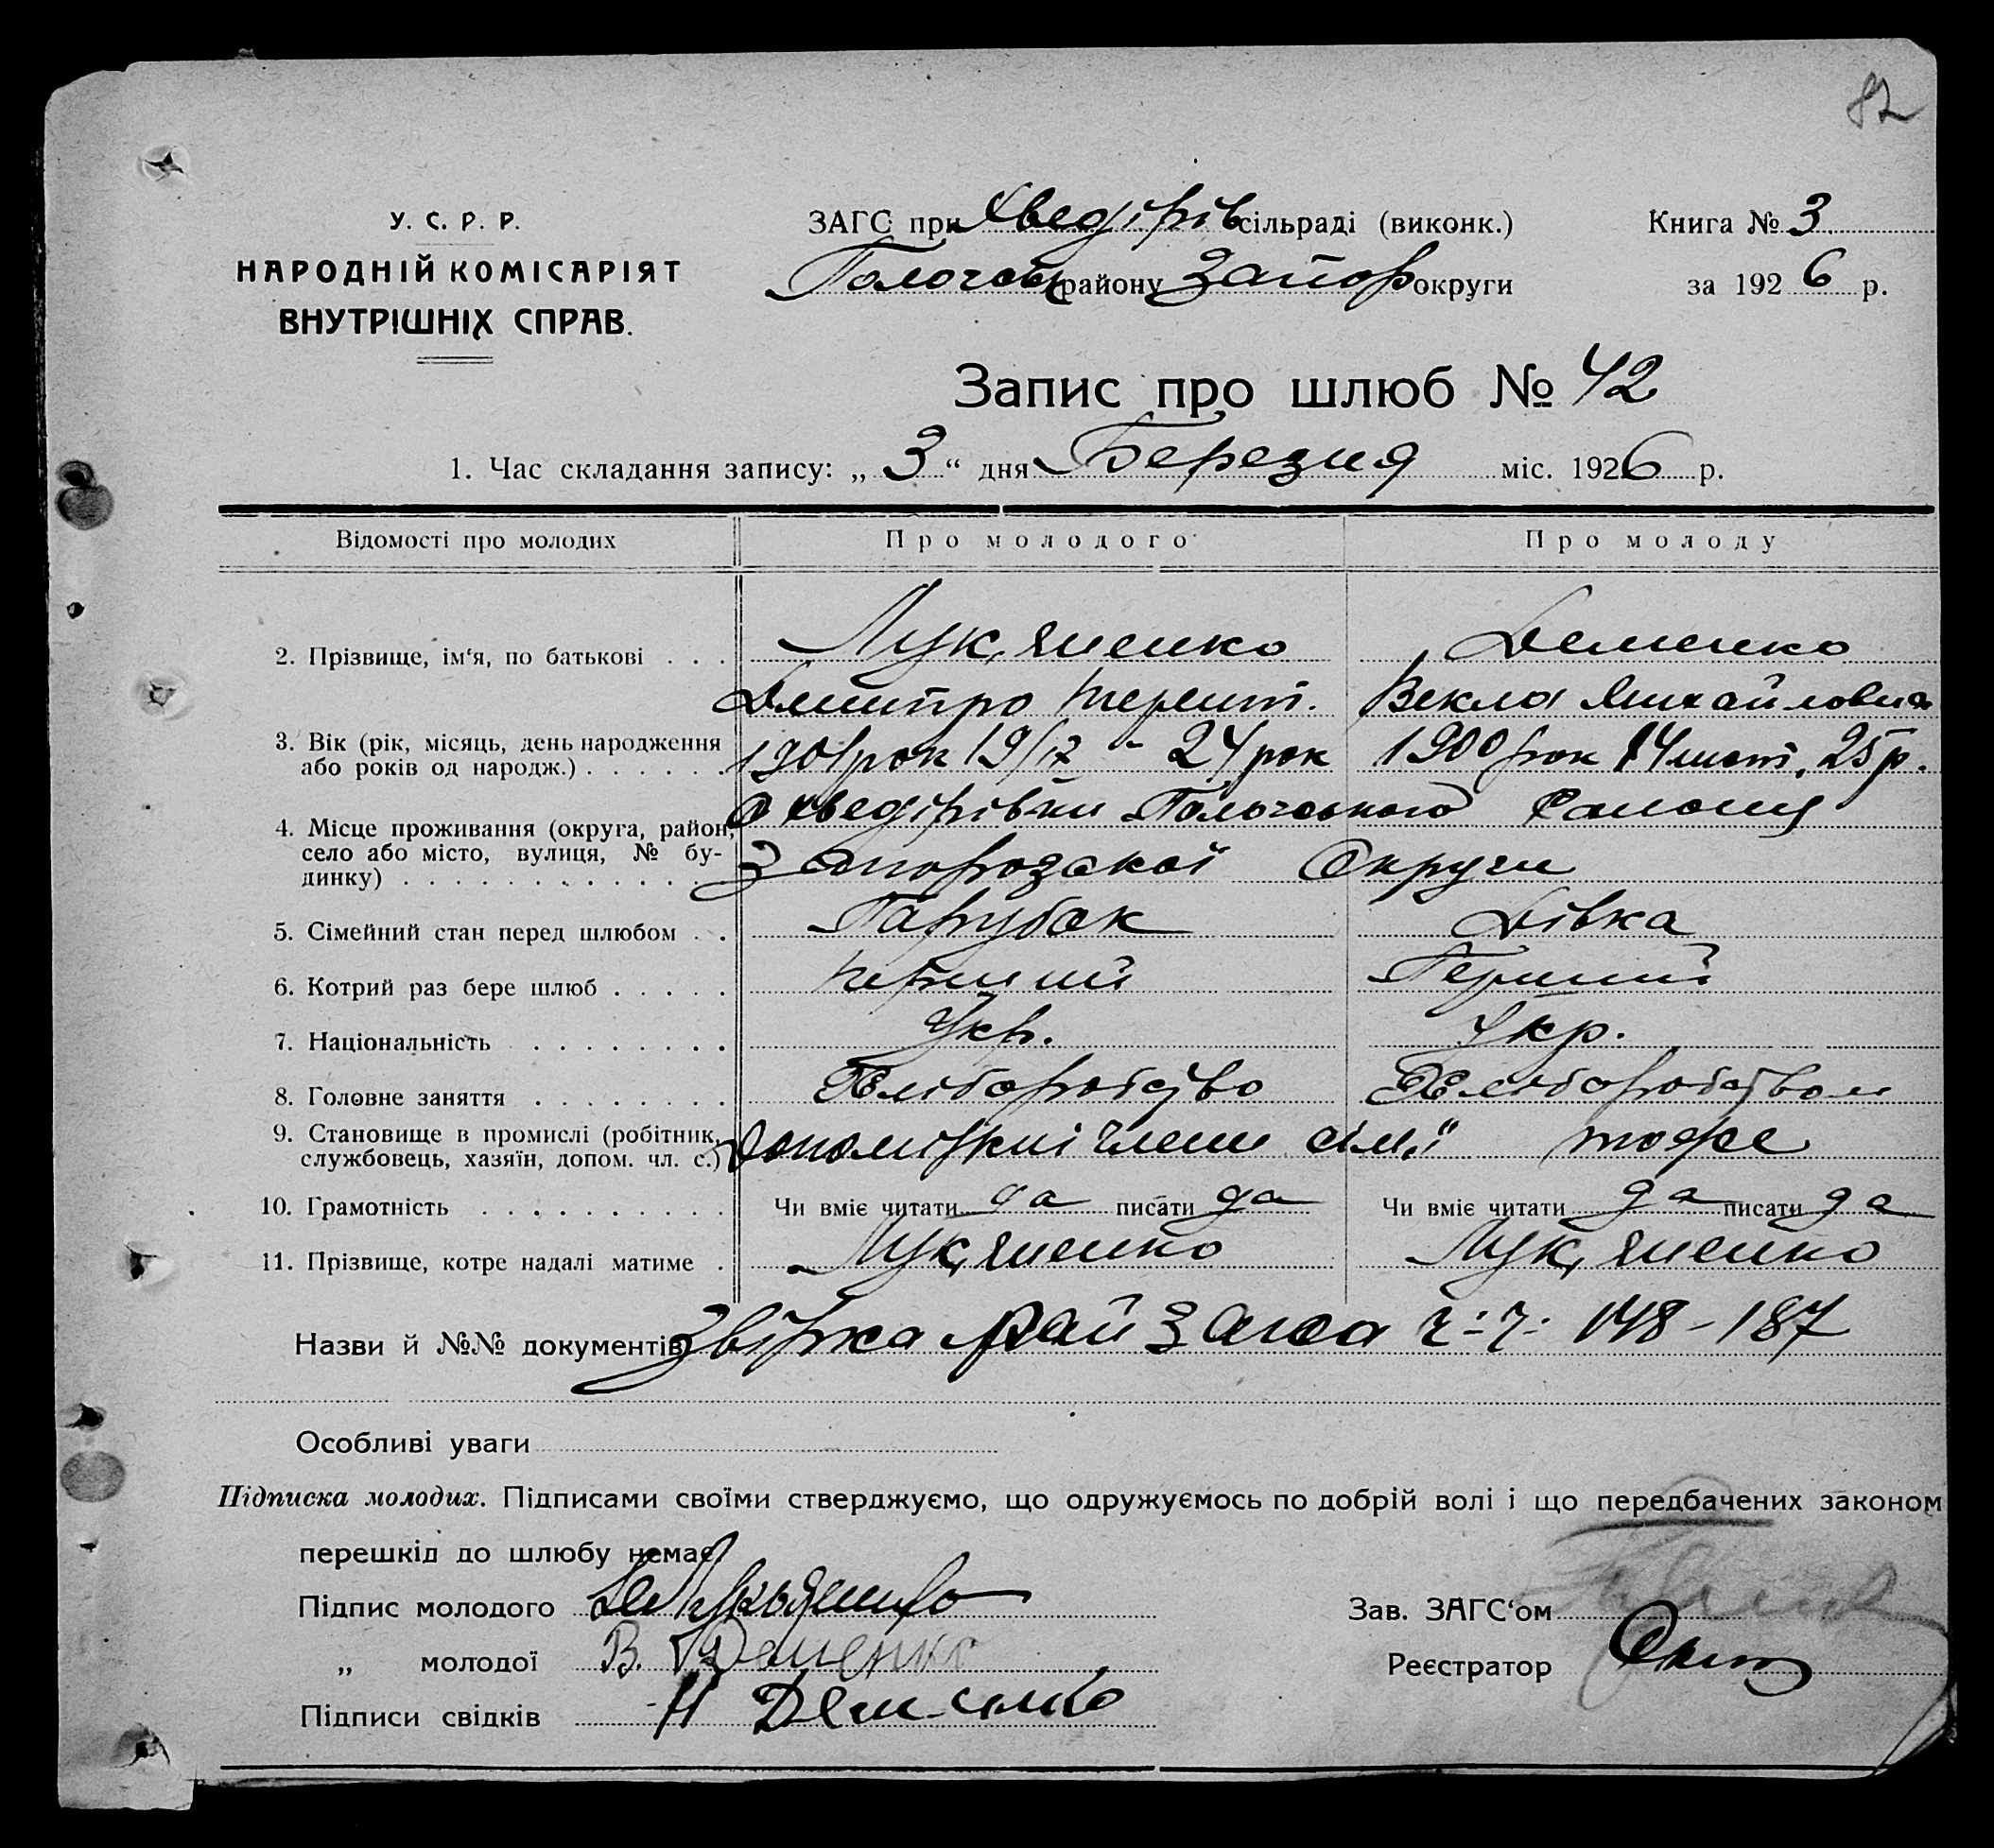 82
У. С. Р. Р.
НАРОДНІЙ КОМІСАРІЯТ
ВНУТРІШНІХ СПРАВ.
ЗАГС при Хведірів сільраді (виконк.)
Пологовськ району Запор округи
Книга № 3
за 1926 р.
Запис про шлюб № 42
1. Час складання запису: „ 3 “ дня Березня міс. 1926 р.
Відомості про молодих Про молодого Про молоду
2. Прізвище, ім‘я, по батькові . . . Лук,яненко Деменко
Дмитро Терент. Векла Михайловна
3. Вік (рік, місяць, день народження
або років од народж.) . . . . . . 1901 рок 19/IX - 24 рок 1900 рок 14 лист. 25 р.
4. Місце проживання (округа, район, с Хведірівки Пологського Району
село або місто, вулиця, № бу-
динку) . . . . . . . . . . . . Запорозської Округи
5. Сімейний стан перед шлюбом . . Парубок Дівка
6. Котрий раз бере шлюб . . . . . перший Перший
7. Національність . . . . . . . . Укр. Укр.
8. Головне заняття . . . . . . . . Хліборобство Хліборобством
9. Становище в промислі (робітник,
службовець, хазяїн, допом. чл. с.) члени сім,ї тоже
10. Грамотність . . . . . . . . . . Чи вміє читати да писати да Чи вміє читати да писати да
11. Прізвище, котре надалі матиме . Лук,яненко Лук,яненко
Назви й №№ документів Звірка Рай Загса ч-ч- 148-187
Особливі уваги
Підписка молодих. Підписами своїми стверджуємо, що одружуємось по добрій волі і що передбачених законом
перешкід до шлюбу немає.
Підпис молодого Д Лукьяненко
Зав. ЗАГС‘ом
„ молодої В. Деменко
Реєстратор
Підписи свідків Н Деменко